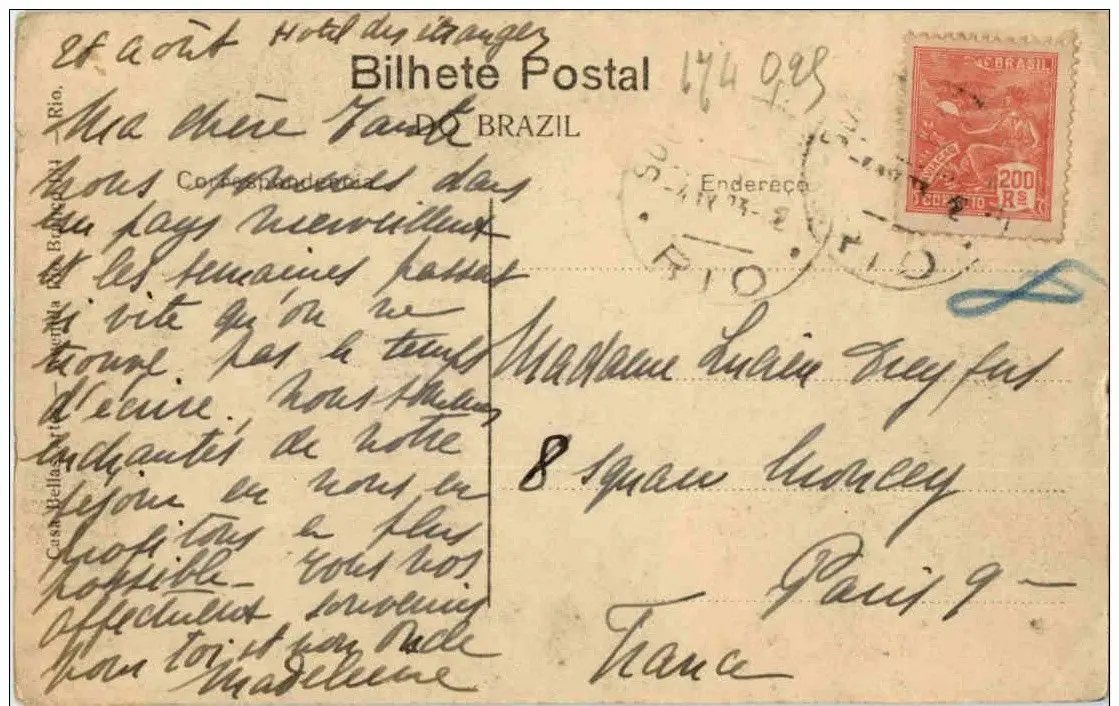 28 août Hotel des étrangers
Bilhete Postal
DO BRAZIL
Correspondencia
Endereço
174 0,95
Ma chère Tante
nous sommes dans
un pays merveilleux
et les semaines passent
si vite qu'on ne
trouve pas le temps
d'écrire. Nous sommes
enchantés de notre
séjour et nous en
profitons le plus
possible - Tous nos
affectueux souvenirs
pour toi et mon oncle
Madeleine
Madame Lucien Dreyfus
8 square Moncey
Paris 9 -
France
BRASIL
AVIAÇÃO
CORREIO
200
RS
RIO
RIO
8
Casa Bella Arte - Avenida Rio Branco - Rio.